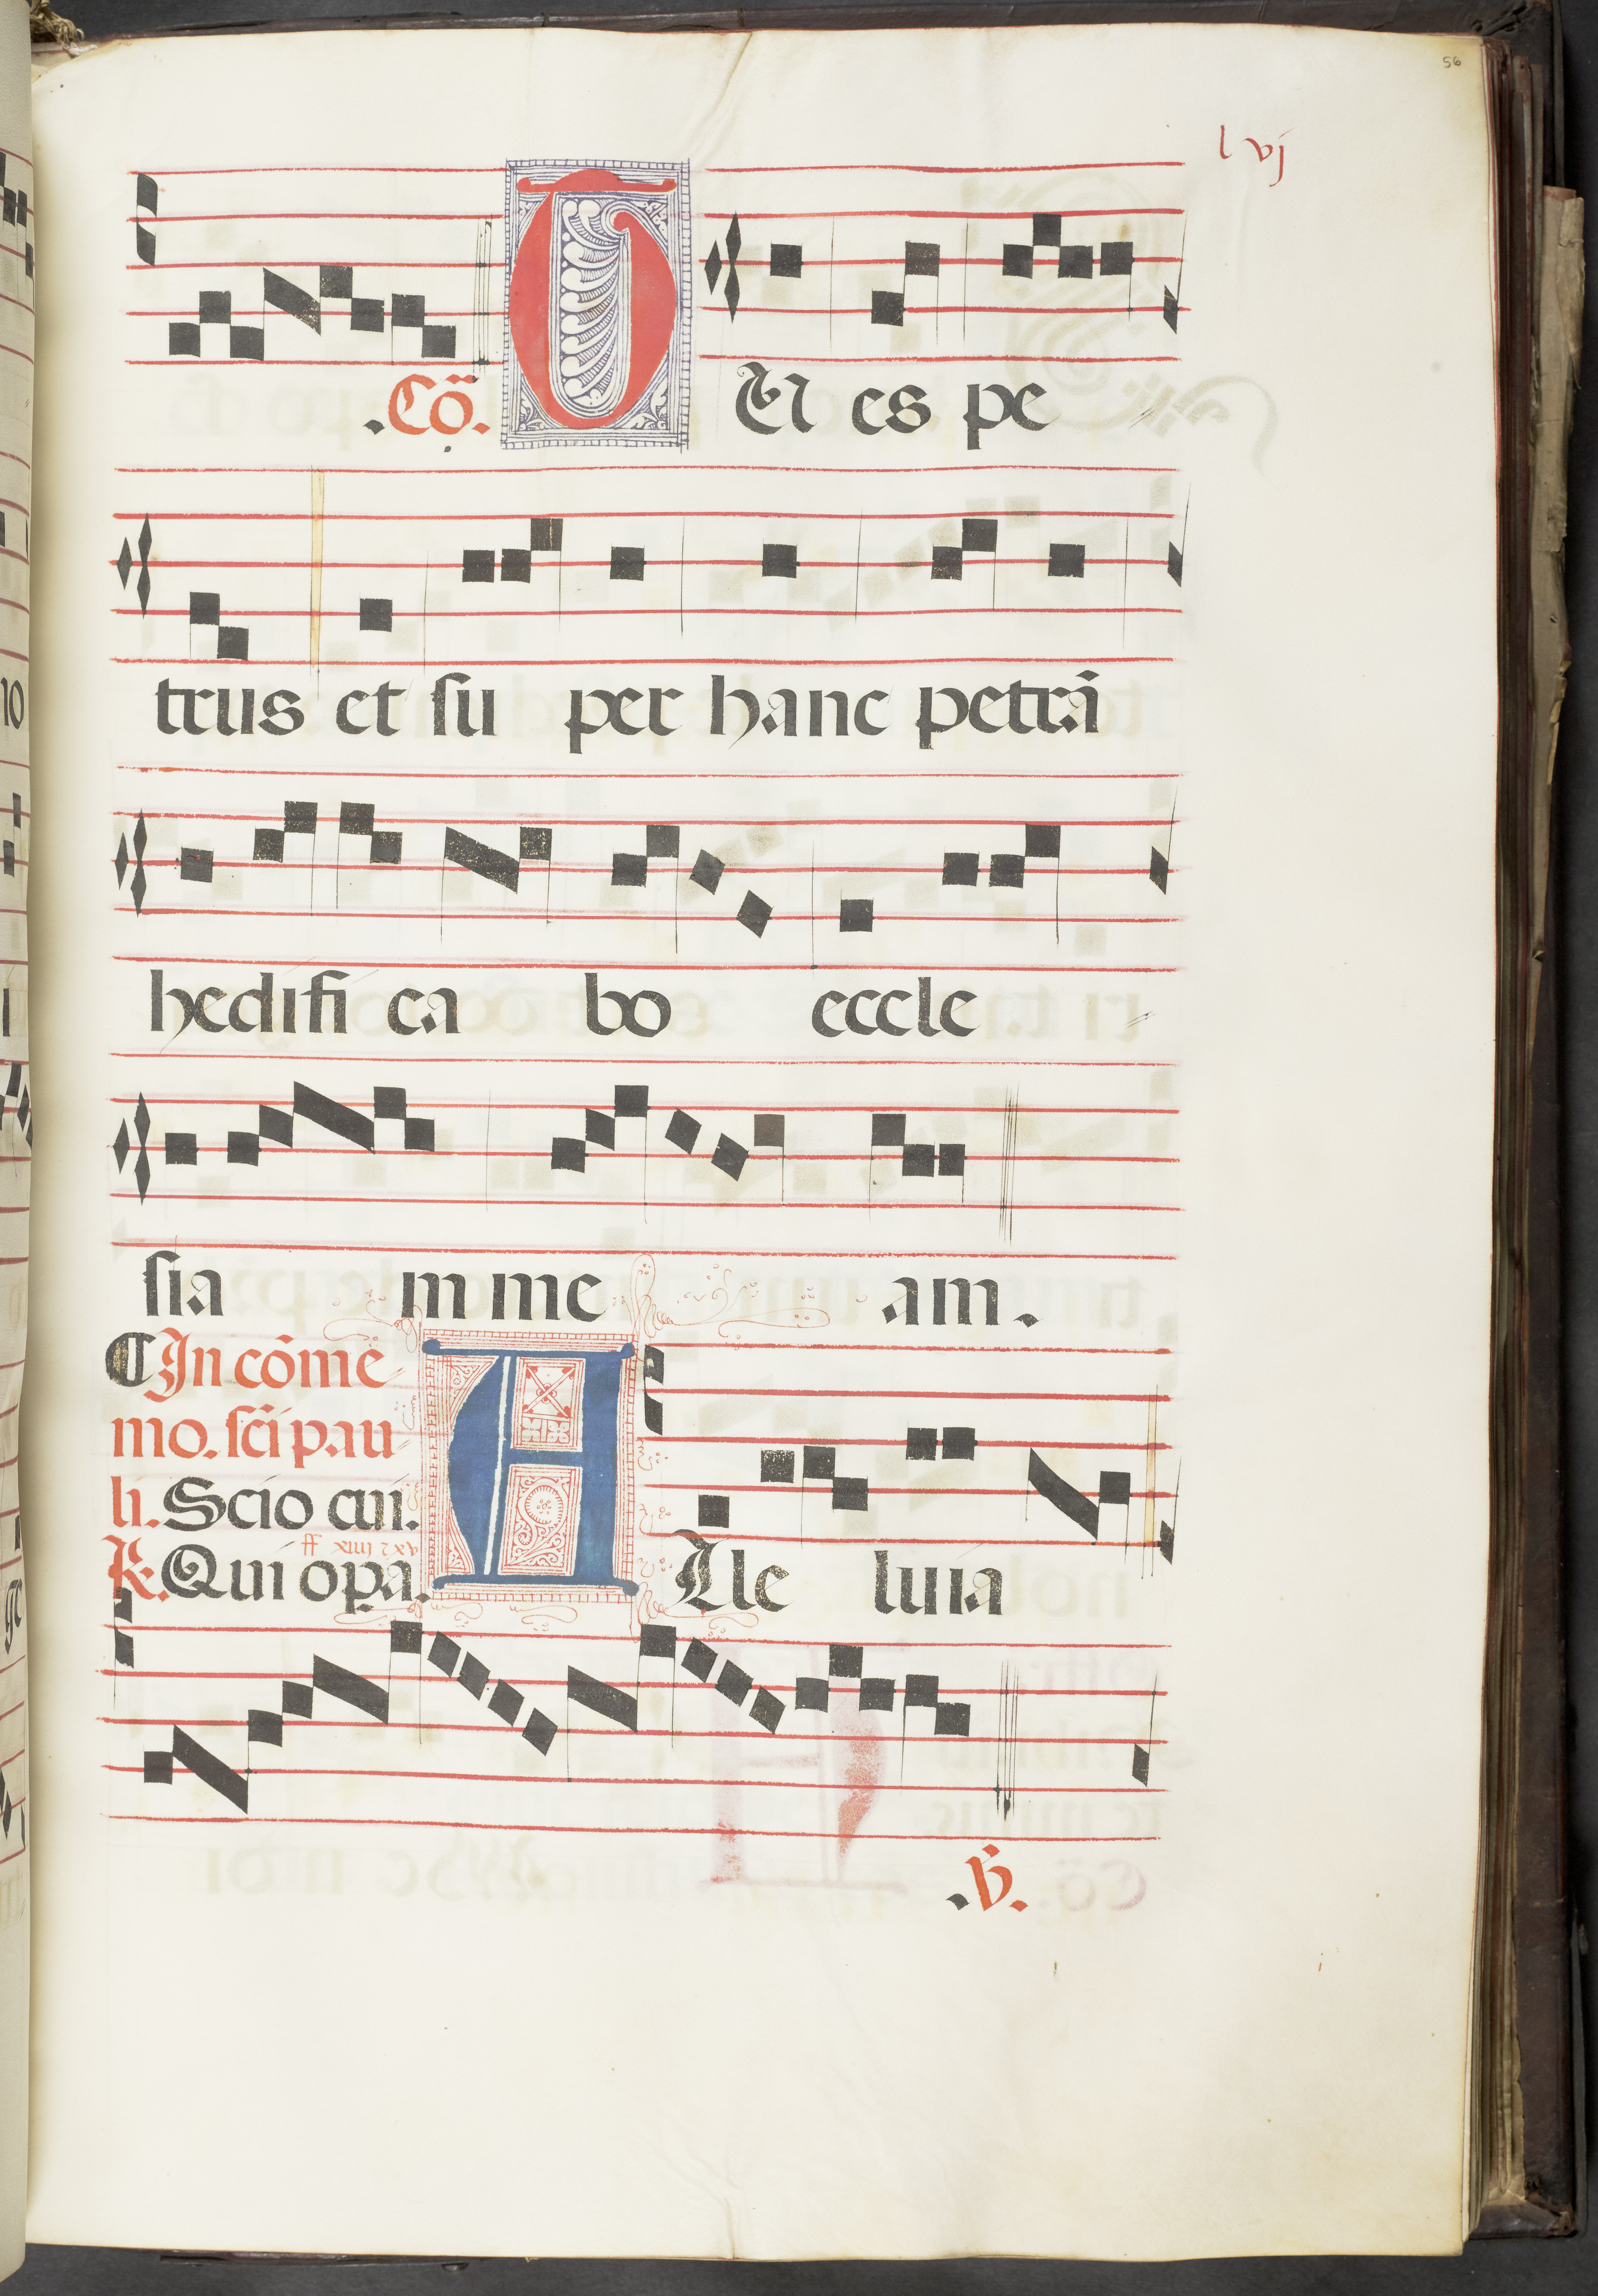 56
l vj
.Cõ. TU es pe
trus et ſu per hanc petrã
hedifi ca bo eccle
ſia m me am.
¶In cõme
mo. ſcĩ pau
li. Scio cui.
ff xiiij ⁊ xv
℟. Qui opa. A Lle luia
.℣.